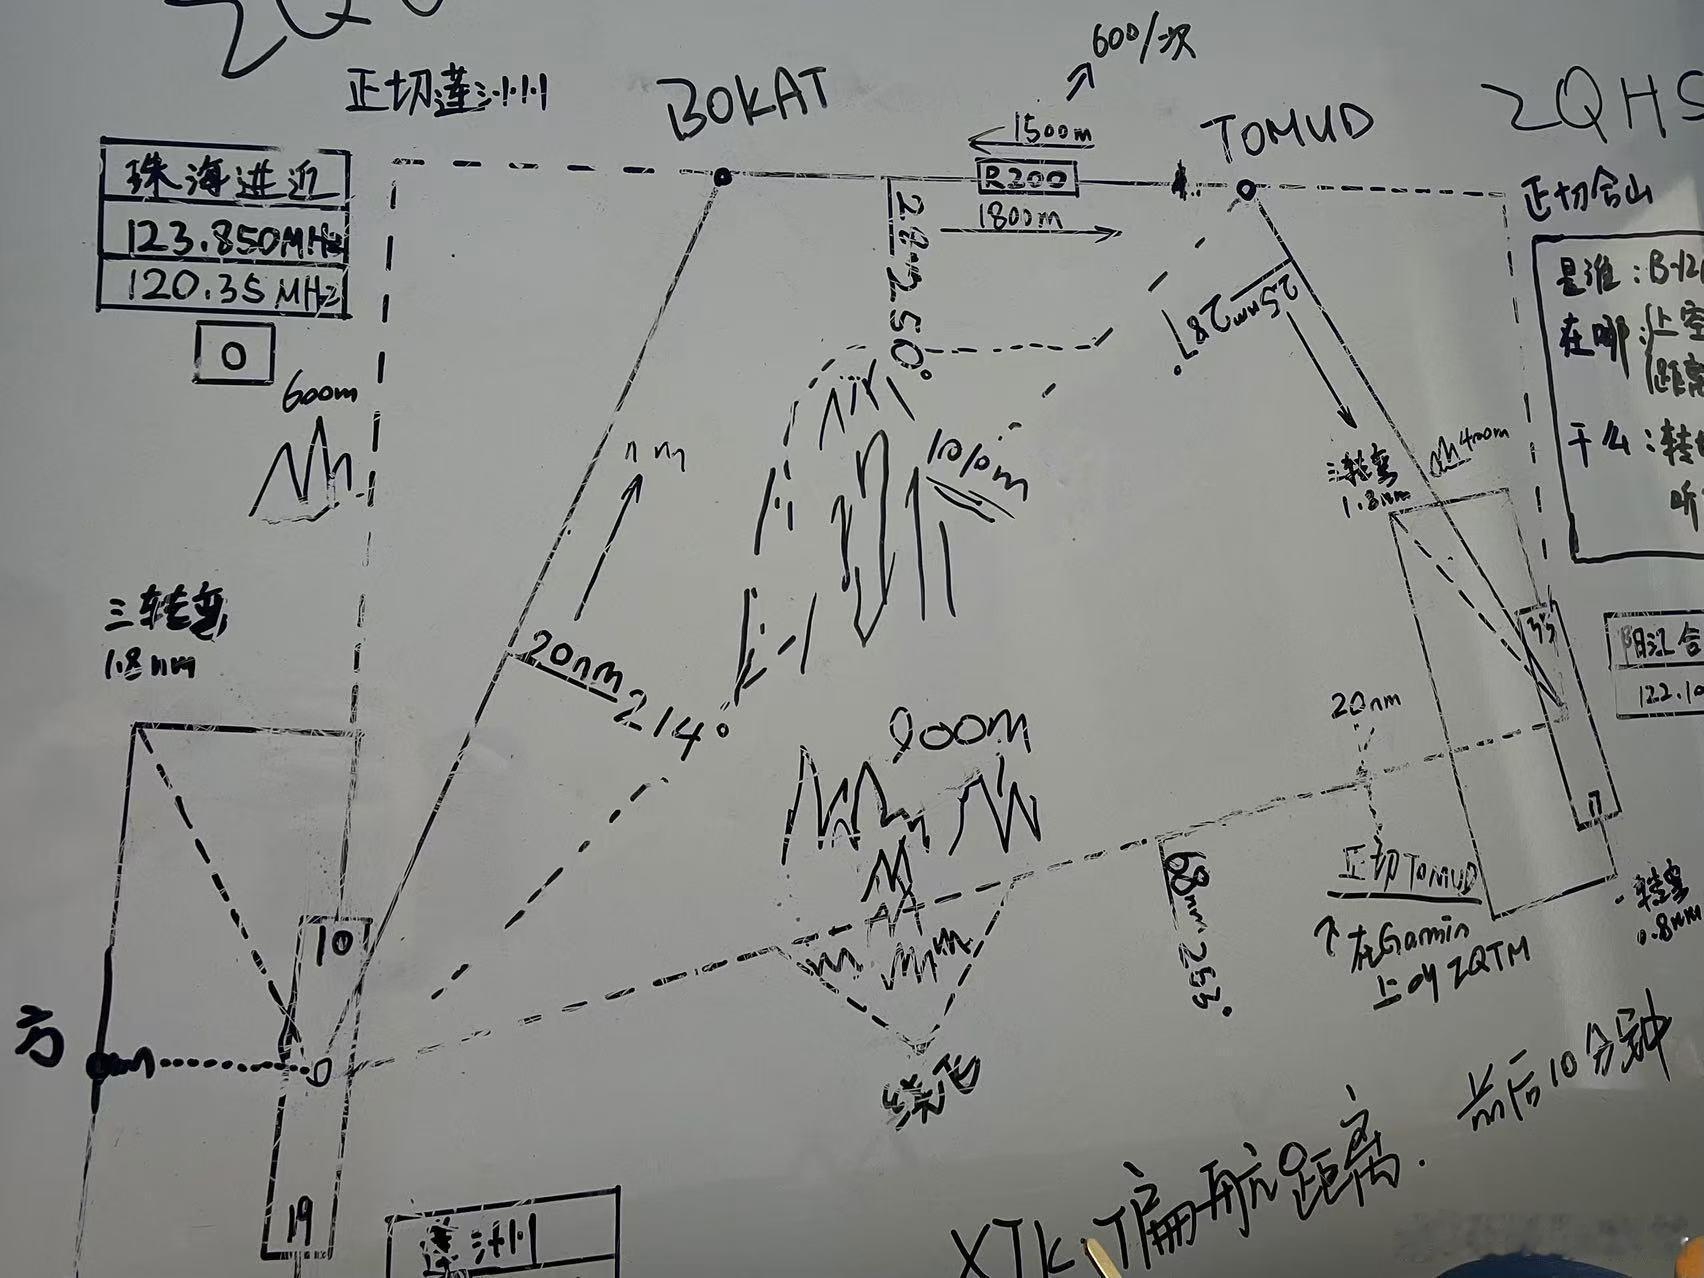 正切莲洲
BOKAT
600/次
1500m
R200
1800m
TOMUD
ZQHS
正切合山
珠海进近
123.850MHz
120.35MHz
0
600m
28nm250°
25nm287°
是谁:B-12
在哪:上空
距离
干么:转
听
三转弯
1.8nm
400m
nm
1010m
三转弯
1.8nm
20nm214°
900m
20nm
33
阳江合
122.10
17
正切TOMUD
在Garmin
上的ZQTM
68nm253°
一转弯
0.8nm
10
绕飞
19
莲洲
XTK:偏航距离.
前后10分钟